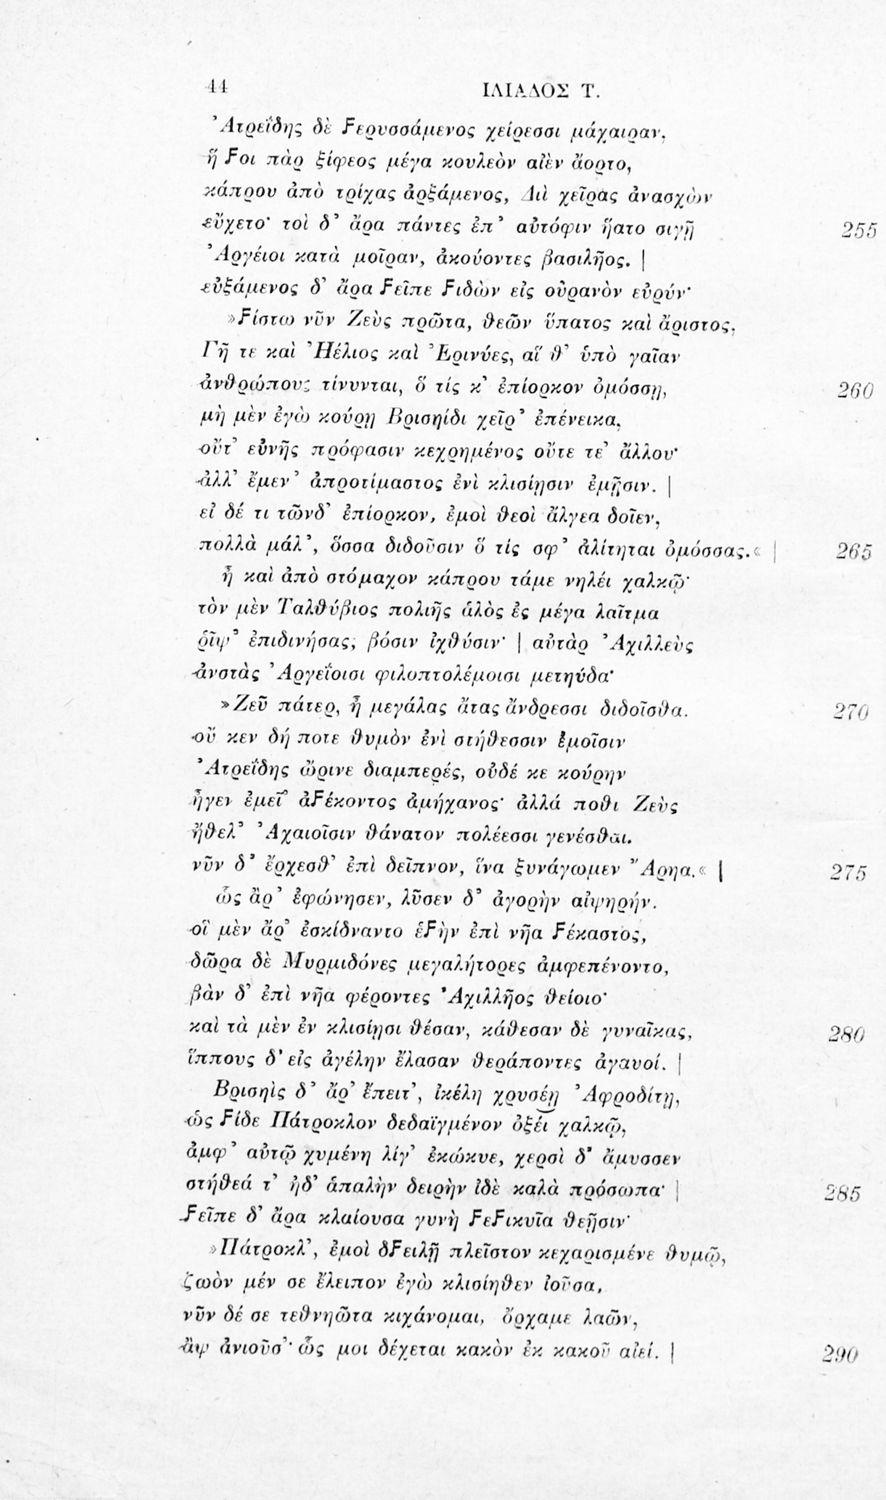 44 ΙΛΙΑΔΟΣ Τ.
Ἀτρεΐδης δὲ ϝερυσσάμενος χείρεσσι μάχαιραν,
ἥ ϝοι πὰρ ξίφεος μέγα κουλεὸν αἰὲν ἄορτο,
κάπρου ἀπὸ τρίχας ἀρξάμενος, Διὶ χεῖρας ἀνασχὼν
εὔχετο· τοὶ δ' ἄρα πάντες ἐπ' αὐτόφιν ἥατο σιγῇ 255
Ἀργέιοι κατὰ μοῖραν, ἀκούοντες βασιλῆος. |
εὐξάμενος δ' ἄρα ϝεῖπε ϝιδὼν εἰς οὐρανὸν εὐρύν·
»ϝίστω νῦν Ζεὺς πρῶτα, θεῶν ὕπατος καὶ ἄριστος,
Γῆ τε καὶ Ἠέλιος καὶ Ἐρινύες, αἵ θ' ὑπὸ γαῖαν
ἀνθρώπους τίνυνται, ὅ τίς κ' ἐπίορκον ὀμόσσῃ, 260
μὴ μὲν ἐγὼ κούρῃ Βρισηίδι χεῖρ' ἐπένεικα,
οὔτ' εὐνῆς πρόφασιν κεχρημένος οὔτε τε' ἄλλου·
ἀλλ' ἔμεν' ἀπροτίμαστος ἐνὶ κλισίῃσιν ἐμῇσιν. |
εἰ δέ τι τῶνδ' ἐπίορκον, ἐμοὶ θεοὶ ἄλγεα δοῖεν,
πολλὰ μάλ', ὅσσα διδοῦσιν ὅ τίς σφ' ἀλίτηται ὀμόσσας.« | 265
ἦ καὶ ἀπὸ στόμαχον κάπρου τάμε νηλέι χαλκῷ·
τὸν μὲν Ταλθύβιος πολιῆς ἁλὸς ἐς μέγα λαῖτμα
ῥῖψ' ἐπιδινήσας, βόσιν ἰχθύσιν· | αὐτὰρ Ἀχιλλεὺς
ἀνστὰς Ἀργεΐοισι φιλοπτολέμοισι μετηύδα·
»Ζεῦ πάτερ, ἦ μεγάλας ἄτας ἄνδρεσσι διδοῖσθα. 270
οὔ κεν δή ποτε θυμὸν ἐνὶ στήθεσσιν ἐμοῖσιν
Ἀτρεΐδης ὤρινε διαμπερές, οὐδέ κε κούρην
ἦγεν ἐμεῖ' ἀϝέκοντος ἀμήχανος· ἀλλά ποθι Ζεὺς
ἤθελ' Ἀχαιοῖσιν θάνατον πολέεσσι γενέσθαι.
νῦν δ' ἔρχεσθ' ἐπὶ δεῖπνον, ἵνα ξυνάγωμεν Ἄρηα.« | 275
ὣς ἂρ' ἐφώνησεν, λῦσεν δ' ἀγορὴν αἰψηρήν.
οἳ μὲν ἄρ' ἐσκίδναντο ἑϝὴν ἐπὶ νῆα ϝέκαστος,
δῶρα δὲ Μυρμιδόνες μεγαλήτορες ἀμφεπένοντο,
βὰν δ' ἐπὶ νῆα φέροντες Ἀχιλλῆος θείοιο·
καὶ τὰ μὲν ἐν κλισίῃσι θέσαν, κάθεσαν δὲ γυναῖκας, 280
ἵππους δ' εἰς ἀγέλην ἔλασαν θεράποντες ἀγαυοί. |
Βρισηὶς δ' ἄρ' ἔπειτ', ἰκέλη χρυσέῃ Ἀφροδίτῃ,
ὡς ϝίδε Πάτροκλον δεδαϊγμένον ὀξέι χαλκῷ,
ἀμφ' αὐτῷ χυμένη λίγ' ἐκώκυε, χερσὶ δ' ἄμυσσεν
στήθεά τ' ἠδ' ἁπαλὴν δειρὴν ἰδὲ καλὰ πρόσωπα· | 285
ϝεῖπε δ' ἄρα κλαίουσα γυνὴ ϝεϝικυῖα θεῇσιν·
»Πάτροκλ', ἐμοὶ δϝειλῇ πλεῖστον κεχαρισμένε θυμῷ,
ζωὸν μέν σε ἔλειπον ἐγὼ κλισίηθεν ἰοῦσα,
νῦν δέ σε τεθνηῶτα κιχάνομαι, ὄρχαμε λαῶν,
ἂψ ἀνιοῦσ'· ὥς μοι δέχεται κακὸν ἐκ κακοῦ αἰεί. | 290